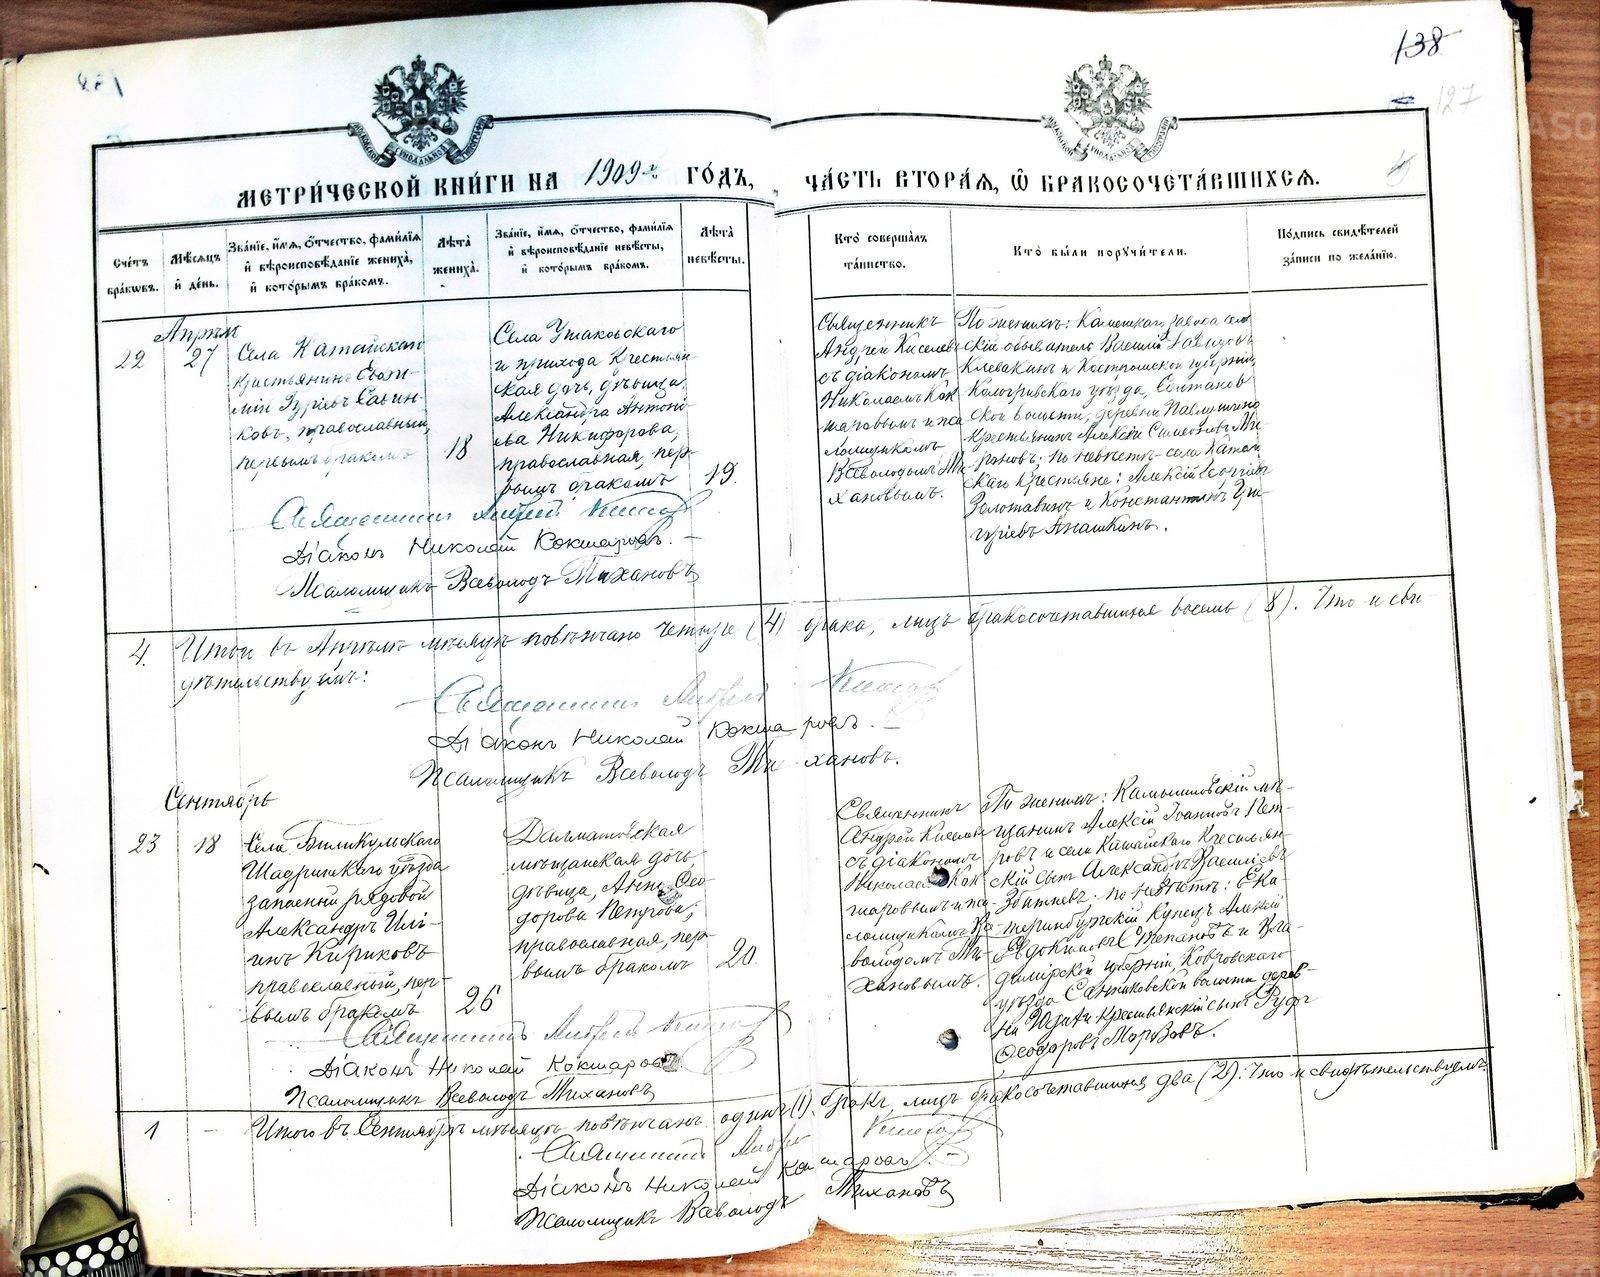 138
127
МЕТРИ́ЧЕСКОЙ КНИ́ГИ НА 1909-й ГО́ДЪ, ЧА́СТЬ ВТОРА́Я, Ѿ БРАКОСОЧЕТА́ВШИХСЯ.
Сче́тъ бра́кѡвъ.
Мѣ́сяцъ и҆ де́нь.
Зва́нїе, и҆́мя, ѻ҆́тчество, фами́лїя
и҆ вѣроисповѣ́данїе жениха̀,
и҆ кото́рымъ бра́комъ.
Лѣта̀ жениха̀.
Зва́нїе, и҆́мя, ѻ҆́тчество, фами́лїя
и҆ вѣроисповѣ́данїе невѣ́сты,
и҆ кото́рымъ бра́комъ.
Лѣта̀ невѣ́сты.
Кто̀ соверша́лъ
та́инство.
Кто̀ бы́ли порꙋчи́тели.
По́дпись свидѣ́телей
за́писи по жела́нїю.
Апрѣль
22
27
Села Катайскаго
крестьянинъ Евѳи-
мій Гурьевъ Савин-
ковъ, православный,
первымъ бракомъ
18
Села Ушаковскаго
и прихода крестьян
ская дочь, дѣвица
Александра Антоні-
ева Никифорова,
православная, пер-
вымъ бракомъ
19.
Священникъ
Андрей Киселевъ
съ діакономъ
Николаемъ Кок
шаровымъ и пса
ломщикомъ
Всеволодомъ Ти-
хановымъ.
По женихѣ: Каменскаго завода сель
скій обыватель Василій Давидовъ
Клевакинъ и Костромской губерніи,
Кологривскаго уѣзда, Солтанов
ской волости, деревни Павлушино
крестьянинъ Алексій Симеоновъ Ми-
роновъ; по невѣстѣ – села Катай
скаго крестьяне: Алексій Георгіевъ
Золотавинъ и Константинъ Гри-
горіевъ Анашкинъ.
Священникъ Андрей Киселевъ
Діаконъ Николай Кокшаровъ. –
Псаломщикъ Всеволодъ Тихановъ
4.
Итого въ Апрѣлѣ мѣсяцѣ повѣнчано четыре (4) брака, лицъ бракосочетавшихся восемь (8). Что и сви-
дѣтельствуемъ:
Священникъ Андрей Киселевъ
Діаконъ Николай Кокшаровъ. –
Псаломщикъ Всеволодъ Тихановъ.
Сентябрь
23
18
Села Биликульскаго
Шадринскаго уѣзда
запасный рядовой
Александръ Иль-
инъ Кириковъ
православный, пер-
вымъ бракомъ
26
Далматовская
мѣщанская дочь,
дѣвица, Анна Ѳео-
дорова Петрова;
православная, пер-
вымъ бракомъ
20.
Священникъ
Андрей Киселевъ
съ діакономъ
Николаемъ Кок
шаровымъ и пса-
ломщикомъ Все-
володомъ Ти-
хановымъ.
По женихѣ: Камышловскій мѣ-
щанинъ Алексій Іоанновъ Пет-
ровъ и села Катайскаго крестьян-
скій сынъ Александръ Васильевъ
по невѣстѣ: Ека-
теринбургскій купецъ Алексій
Евдокимовъ Степановъ и Вла-
димірской губерніи, Ковровскаго
уѣзда Санниковской волости дерев-
ни крестьянскій сынъ Руфъ
Ѳеодоровъ Морозовъ.
Священникъ Андрей Киселевъ
Діаконъ Николай Кокшаровъ
Псаломщикъ Всеволодъ Тихановъ
1
–
Итого въ Сентябрѣ мѣсяцѣ повѣнчанъ одинъ (1) бракъ, лицъ бракосочетавшихся два (2). Что и свидѣтельствуемъ:
Священникъ Андрей Киселевъ
Діаконъ Николай Кокшаровъ. –
Псаломщикъ Всеволодъ Тихановъ